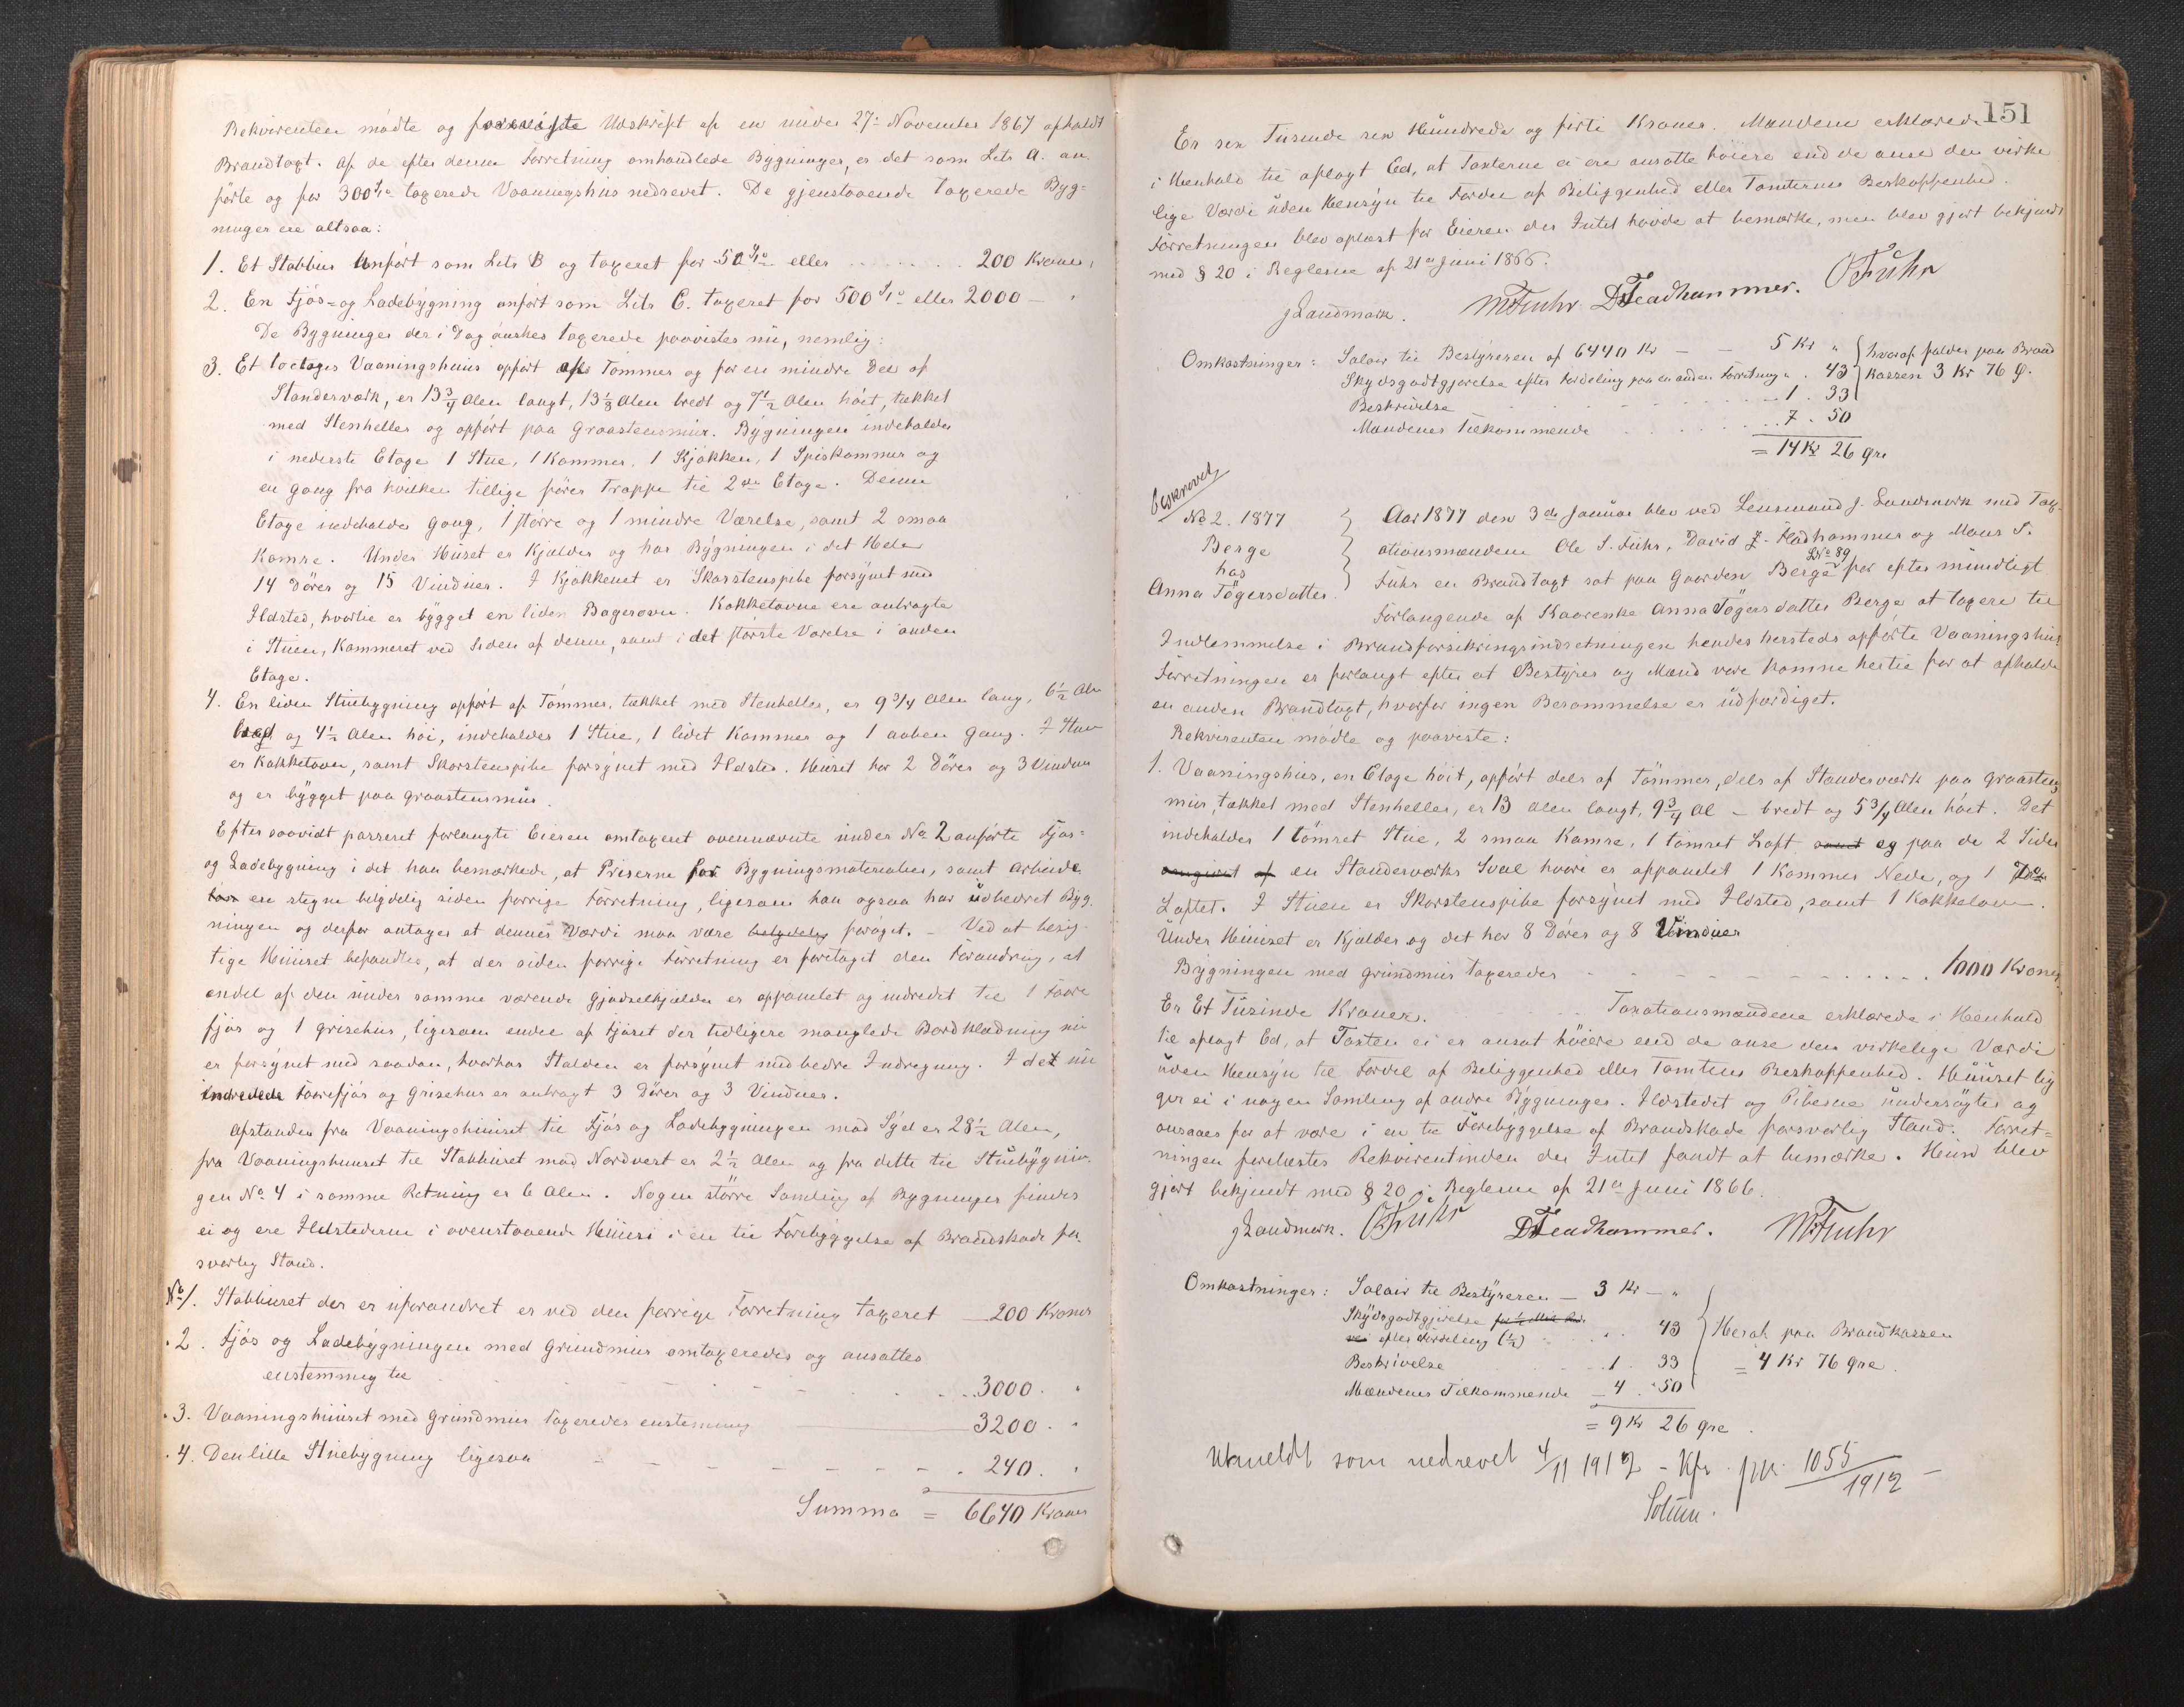 Rekvirenten mødte og foreviiste Udskrift af en under 27de November 1867 afholdt
Brandtaxt. Af de efter denne Forretning omhandlede Bygninger, er det som Litr A. an-
førte og for 300 Spd taxerede Vaaningshus nedrevet. De gjenstaaende taxerede Byg=
ninger ere altsaa:
1. Et Stabbur anført som Litr B og taxeret for 50 Spd eller 200 Kroner,
2. En Fjøs= og Ladebygning anført som Litr C. taxeret for 500 Spd eller 2000 — "
De Bygninger der i Dag ønskes taxerede paavistes nu, nemlig:
3. Et toetages Vaaningshuus opført af Tømmer og for en mindre Del af
Standerværk, er 13 3/4 Alen langt, 13 1/8 Alen bredt og 7 1/2 Alen høit, tækket
med Stenheller og opført paa Graastensmur. Bygningen indeholder
i nederste Etage 1 Stue, 1 Kammer, 1 Kjøkken, 1 Spiskammer og
en Gang fra hvilken tillige fører Trappe til 2den Etage. Denne
Etage indeholder Gang, 1 større og 1 mindre Værelse, samt 2 smaa
Kamre. Under Huset er Kjælder og har Bygningen i det Hele
14 Dører og 15 Vinduer. I Kjøkkenet er Skorstenspibe forsynet med
Ildsted, hvortil er bygget en liden Bagerovn. Kakkelovne ere anbragte
i Stuen, Kammeret ved Siden af denne, samt i det største Værelse i anden
Etage.
4. En liden Stuebygning opført af Tømmer, tækket med Stenheller, er 9 3/4 Alen lang, 6 1/2 Alen
bred og 4 1/2 Alen høi, indeholder 1 Stue, 1 lidet Kammer og 1 aaben Gang. I Stuen
er Kakkelovn, samt Skorstenspibe forsynet med Ildsted. Huset har 2 Dører og 3 Vinduer
og er bygget paa Graastensmur.
Efter saavidt passeret forlangte Eieren omtaxeret ovennævnte under No 2 anførte Fjøs=
og Ladebygning i det han bemærkede, at Priserne for Bygningsmaterialier, samt Arbeids-
løn ere stegne betydelig siden forrige Forretning, ligesom han ogsaa har udbedret Byg-
ningen og derfor antager at dennes Værdi maa være betydelig forøget. — Ved at besig-
tige Huset befandtes, at der siden forrige Forretning er foretaget den Forandring, at
endel af den under samme værende Gjødselkjælder er oppanelet og indredet til 1 Faare
fjøs og 1 Grisehus, ligesom endel af Fjøset der tidligere manglede Bordklædning nu
er forsynet med saadan, hvorhos Stalden er forsynet med bedre Indregning. I det nu
indredede Faarefjøs og Grisehus er anbragt 3 Dører og 3 Vinduer.
Afstanden fra Vaaningshuuset til Fjøs og Ladebygningen mod Syd er 28 1/2 Alen,
fra Vaaningshuuset til Stabburet mod Nordvest er 2 1/2 Alen og fra dette til Stuebygnin-
gen No 4 i samme Retning er 6 Alen. Nogen større Samling af Bygninger findes
ei og ere Ildstederne i ovenstaaende Huse i en til Forebyggelse af Brandskade for-
svarlig Stand.
No 1. Stabburet der er uforandret er ved den forrige Forretning taxeret — 200 Kroner
" 2. Fjøs og Ladebygningen med Grundmur omtaxeredes og ansattes
enstemmig til 3000. "
" 3. Vaaningshuuset med Grundmur taxeredes enstemmig 3200. "
" 4. Den lille Stuebygning ligesaa 240. "
Summa = 6640 Kroner
151
Er sex Tusende sex Hundrede og firti Kroner. Mændene erklærede
i Henhold til aflagt Ed, at Taxterne ei ere ansatte høiere end de anse den virke
lige Værdi uden Hensyn til Fordel af Beliggenhed eller Tomternes Beskaffenhed.
Forretningen blev oplæst for Eieren der Intet havde at bemærke, men blev gjort bekjendt
med § 20 i Reglerne af 21de Juni 1866.
J Landmark. MSFuhr DFladhammer. OSFuhr
Omkostninger: Salair til Bestyreren af 6440 Kr — — 5 Kr " } hvoraf falder paa Brand
Skydsgodtgjørelse efter Fordeling paa en anden Forretning " . 43 } kassen 3 Kr 76 Ø.
Beskrivelse 1. 33
Mændenes Tilkommende 7. 50
= 14 Kr 26 Øre
Beskrevet
No 2. 1877
Berge
hos
Anna Tøgersdatter.
Aar 1877 den 3de Januar blev ved Lensmand J. Landmark med Tax-
ationsmændene Ole S. Fuhr, David J. Fladhammer og Mons S.
Fuhr en Brandtaxt sat paa Gaarden Berge LNo 89 for efter mundligt
Forlangende af Kaarenke Anna Tøgersdatter Berge at taxere til
Indlemmelse i Brandforsikringsindretningen hendes hersteds opførte Vaaningshus.
Forretningen er forlangt efter at Bestyrer og Mænd vare komne hertil for at afholde
en anden Brandtaxt, hvorfor ingen Berammelse er udfærdiget.
Rekvirenten mødte og paaviste:
1. Vaaningshus, en Etage høit, opført dels af Tømmer, dels af Standerværk paa Graastens
mur, tækket med Stenheller, er 13 Alen langt, 9 3/4 Al — bredt og 5 3/4 Alen høit. Det
indeholder 1 tømret Stue, 2 smaa Kamre, 1 tømret Loft samt og paa de 2 Sider
omgivet af en Standerværks Sval hvori er oppanelet 1 Kammer Nede, og 1 paa
Loftet. I Stuen er Skorstenspibe forsynet med Ildsted, samt 1 Kakkelovn.
Under Huuset er Kjælder og det har 8 Dører og 8 Vinduer
Bygningen med Grundmur taxeredes 1000 Kroner,
Er Et Tusinde Kroner. Taxationsmændene erklærede i Henhold
til aflagt Ed, at Taxten ei er ansat høiere end de anse den virkelige Værdi
uden Hensyn til Fordel af Beliggenhed eller Tomtens Beskaffenhed. Huuset lig
ger ei i nogen Samling af andre Bygninger. Ildstedet og Piberne undersøgtes og
ansaaes for at være i en til Forebyggelse af Brandskade forsvarlig Stand. Forret=
ningen forelæstes Rekvirentinden der Intet fandt at bemærke. Hun blev
gjort bekjendt med § 20 i Reglerne af 21de Juni 1866.
J Landmark. OSFuhr DFladhammer. MSFuhr
Omkostninger: Salair til Bestyreren — 3 Kr — "
Skydsgodtgjørelse
efter Fordeling (1/2) " . 43 } Heraf paa Brandkassen
Beskrivelse 1. 33 = 4 Kr 76 Øre.
Mændenes Tilkommende — 4. 50
= 9 Kr 26 Øre.
Utmeldt som nedrevet 4/11 1912 — Kfr. pk. 1055/1912 —